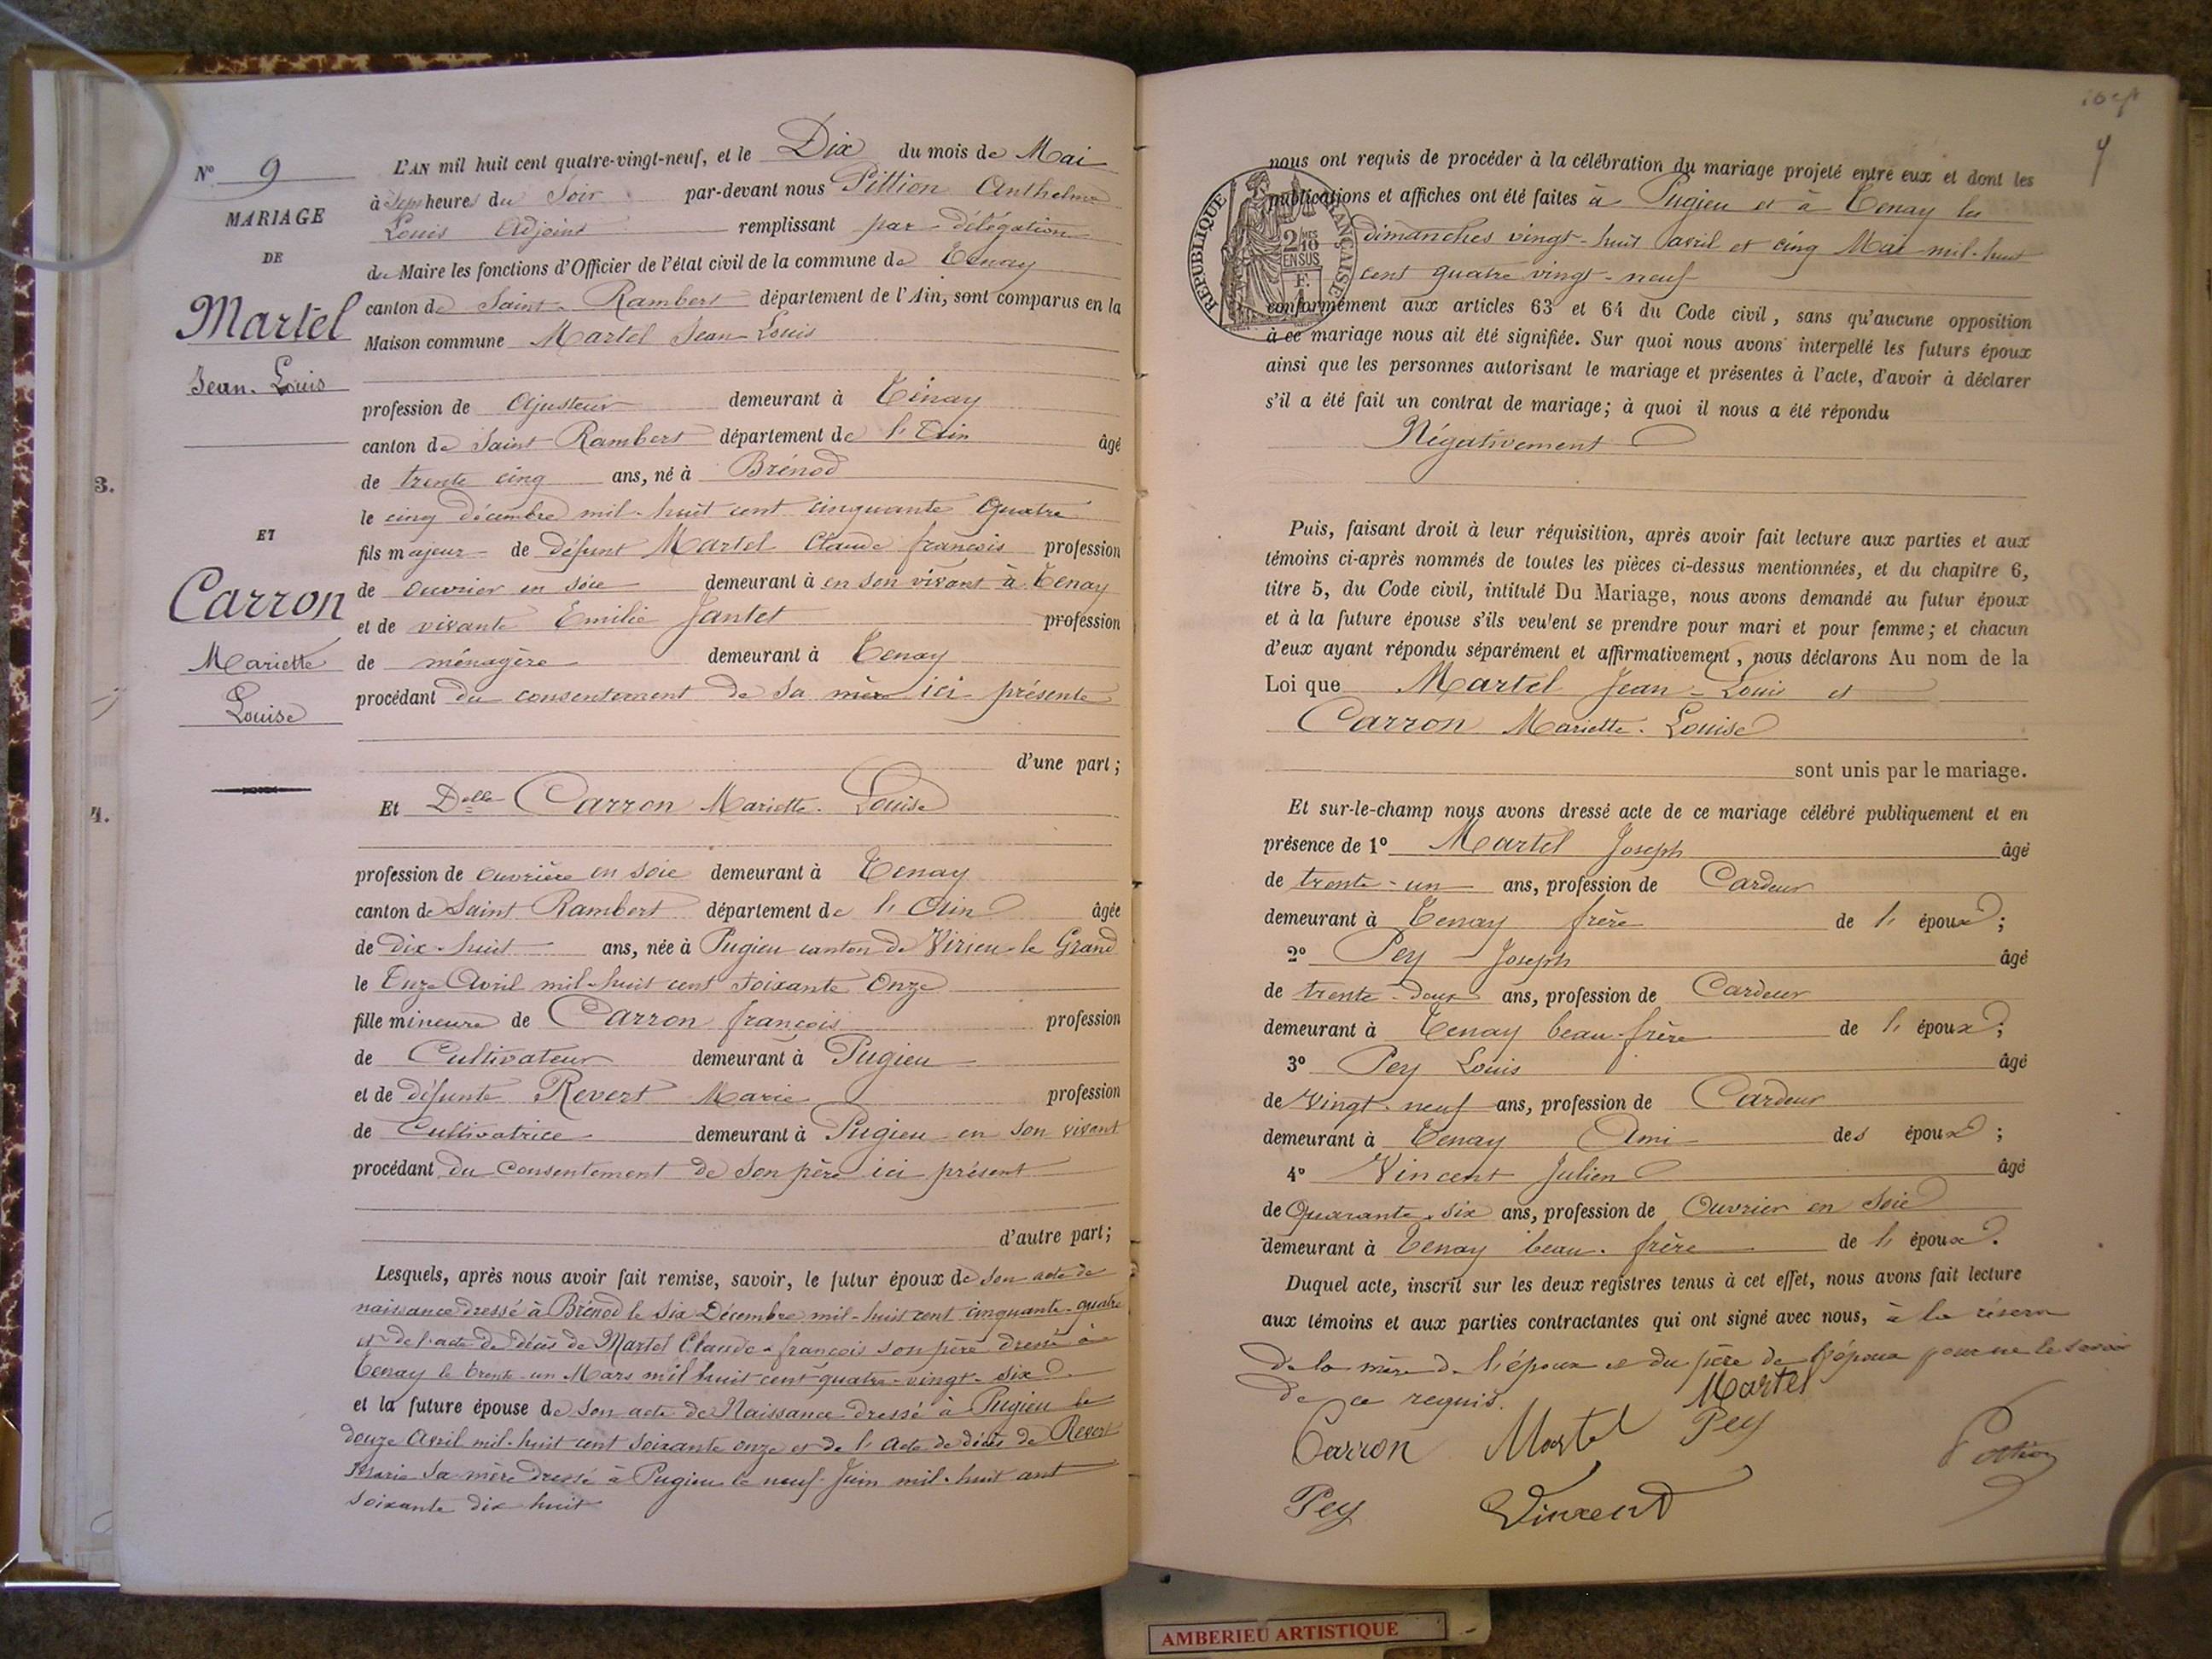 N° 9
MARIAGE
DE
Martel
Jean-Louis
ET
Carron
Mariette
Louise
3.
4.
L'AN mil huit cent quatre-vingt-neuf, et le Dix du mois de Mai
à Sept heures du Soir par-devant nous Pittion Anthelme
Louis Adjoint remplissant par délégation
du Maire les fonctions d'Officier de l'état civil de la commune de Tenay
canton de Saint-Rambert département de l'Ain, sont comparus en la
Maison commune Martel Jean-Louis
profession de Ajusteur demeurant à Tenay
canton de Saint Rambert département de l'Ain âgé
de trente cinq ans, né à Brénod
le cinq décembre mil-huit cent cinquante Quatre
fils majeur de défunt Martel Claude françois profession
de ouvrier en soie demeurant à en son vivant à Tenay
et de vivante Emilie Jantet profession
de ménagère demeurant à Tenay
procédant du consentement de sa mère ici présente
d'une part;
Et Delle Carron Mariette-Louise
profession de ouvrière en soie demeurant à Tenay
canton de Saint Rambert département de l'Ain âgée
de dix-huit ans, née à Pugieu canton de Virieu le Grand
le Onze Avril mil-huit cent soixante Onze
fille mineure de Carron françois profession
de Cultivateur demeurant à Pugieu
et de défunte Revert Marie profession
de Cultivatrice demeurant à Pugieu en son vivant
procédant du Consentement de son père ici présent
d'autre part;
Lesquels, après nous avoir fait remise, savoir, le futur époux de son acte de
naissance dressé à Brénod le six Décembre mil-huit cent cinquante-quatre
et de l'acte de décès de Martel Claude-françois son père dressé à
Tenay le trente-un Mars mil huit cent quatre-vingt-six
et la future épouse de son acte de Naissance dressé à Pugieu le
douze Avril mil-huit cent soixante onze et de l'Acte de décès de Revert
Marie sa mère dressé à Pugieu le neuf Juin mil-huit cent
soixante dix huit
RÉPUBLIQUE FRANÇAISE
2/10 MES
EN SUS
F.
nous ont requis de procéder à la célébration du mariage projeté entre eux et dont les
publications et affiches ont été faites à Pugieu et à Tenay les
dimanches vingt-huit avril et cinq Mai mil-huit
cent quatre vingt-neuf
conformément aux articles 63 et 64 du Code civil, sans qu'aucune opposition
à ce mariage nous ait été signifiée. Sur quoi nous avons interpellé les futurs époux
ainsi que les personnes autorisant le mariage et présentes à l'acte, d'avoir à déclarer
s'il a été fait un contrat de mariage; à quoi il nous a été répondu
Négativement
Puis, faisant droit à leur réquisition, après avoir fait lecture aux parties et aux
témoins ci-après nommés de toutes les pièces ci-dessus mentionnées, et du chapitre 6,
titre 5, du Code civil, intitulé Du Mariage, nous avons demandé au futur époux
et à la future épouse s'ils veulent se prendre pour mari et pour femme; et chacun
d'eux ayant répondu séparément et affirmativement, nous déclarons Au nom de la
Loi que Martel Jean-Louis et
Carron Mariette-Louise
sont unis par le mariage.
Et sur-le-champ nous avons dressé acte de ce mariage célébré publiquement et en
présence de 1° Martel Joseph âgé
de trente-un ans, profession de Cardeur
demeurant à Tenay frère de l'époux;
2° Pey Joseph âgé
de trente-deux ans, profession de Cardeur
demeurant à Tenay beau-frère de l'époux;
3° Pey Louis âgé
de Vingt-neuf ans, profession de Cardeur
demeurant à Tenay Ami des époux;
4° Vincent Julien âgé
de Quarante-six ans, profession de Ouvrier en soie
demeurant à Tenay beau-frère de l'époux.
Duquel acte, inscrit sur les deux registres tenus à cet effet, nous avons fait lecture
aux témoins et aux parties contractantes qui ont signé avec nous, à la réserve
de la mère de l'époux et du père de l'épouse pour ne le savoir
de ce requis.
Martel
Carron Martel Pey
Pey Vincent Pittion
AMBERIEU ARTISTIQUE